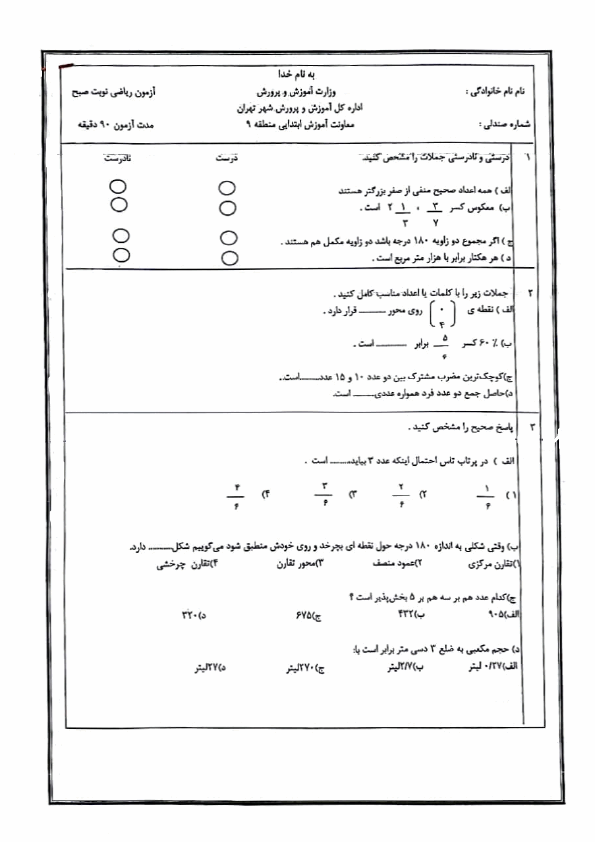 به نام خدا
نام نام خانوادگی : وزارت آموزش و پرورش آزمون ریاضی نوبت صبح
اداره کل آموزش و پرورش شهر تهران
شماره صندلی : معاونت آموزش ابتدایی منطقه ۹ مدت آزمون ۹۰ دقیقه
۱ درستی و نادرستی جملات را مشخص کنید. درست نادرست
الف ) همه اعداد صحیح منفی از صفر بزرگتر هستند
ب) معکوس کسر ۳/۷ ، ۲ ۱/۳ است .
ج ) اگر مجموع دو زاویه ۱۸۰ درجه باشد دو زاویه مکمل هم هستند .
د ) هر هکتار برابر با هزار متر مربع است .
۲ جملات زیر را با کلمات یا اعداد مناسب کامل کنید .
الف ) نقطه ی [۰ ۴] روی محور ........... قرار دارد .
ب) ٪ ۶۰ کسر ۵/۶ برابر ........... است .
ج)کوچک‌ترین مضرب مشترک بین دو عدد ۱۰ و ۱۵ عدد.........است..
د)حاصل جمع دو عدد فرد همواره عددی......... است.
۳ پاسخ صحیح را مشخص کنید .
الف ) در پرتاب تاس احتمال اینکه عدد ۳ بیاید......... است .
۱) ۱/۶ ۲) ۲/۶ ۳) ۳/۶ ۴) ۴/۶
ب) وقتی شکلی به اندازه ۱۸۰ درجه حول نقطه ای بچرخد و روی خودش منطبق شود می‌گوییم شکل.......... دارد.
۱)تقارن مرکزی ۲)عمود منصف ۳)محور تقارن ۴)تقارن چرخشی
ج)کدام عدد هم بر سه هم بر ۵ بخش‌پذیر است ؟
الف)۹۰۵ ب)۴۳۲ ج)۶۷۵ د)۳۲۰
د) حجم مکعبی به ضلع ۳ دسی متر برابر است با:
الف)۰/۲۷ لیتر ب)۲/۷لیتر ج)۲۷۰لیتر د)۲۷لیتر